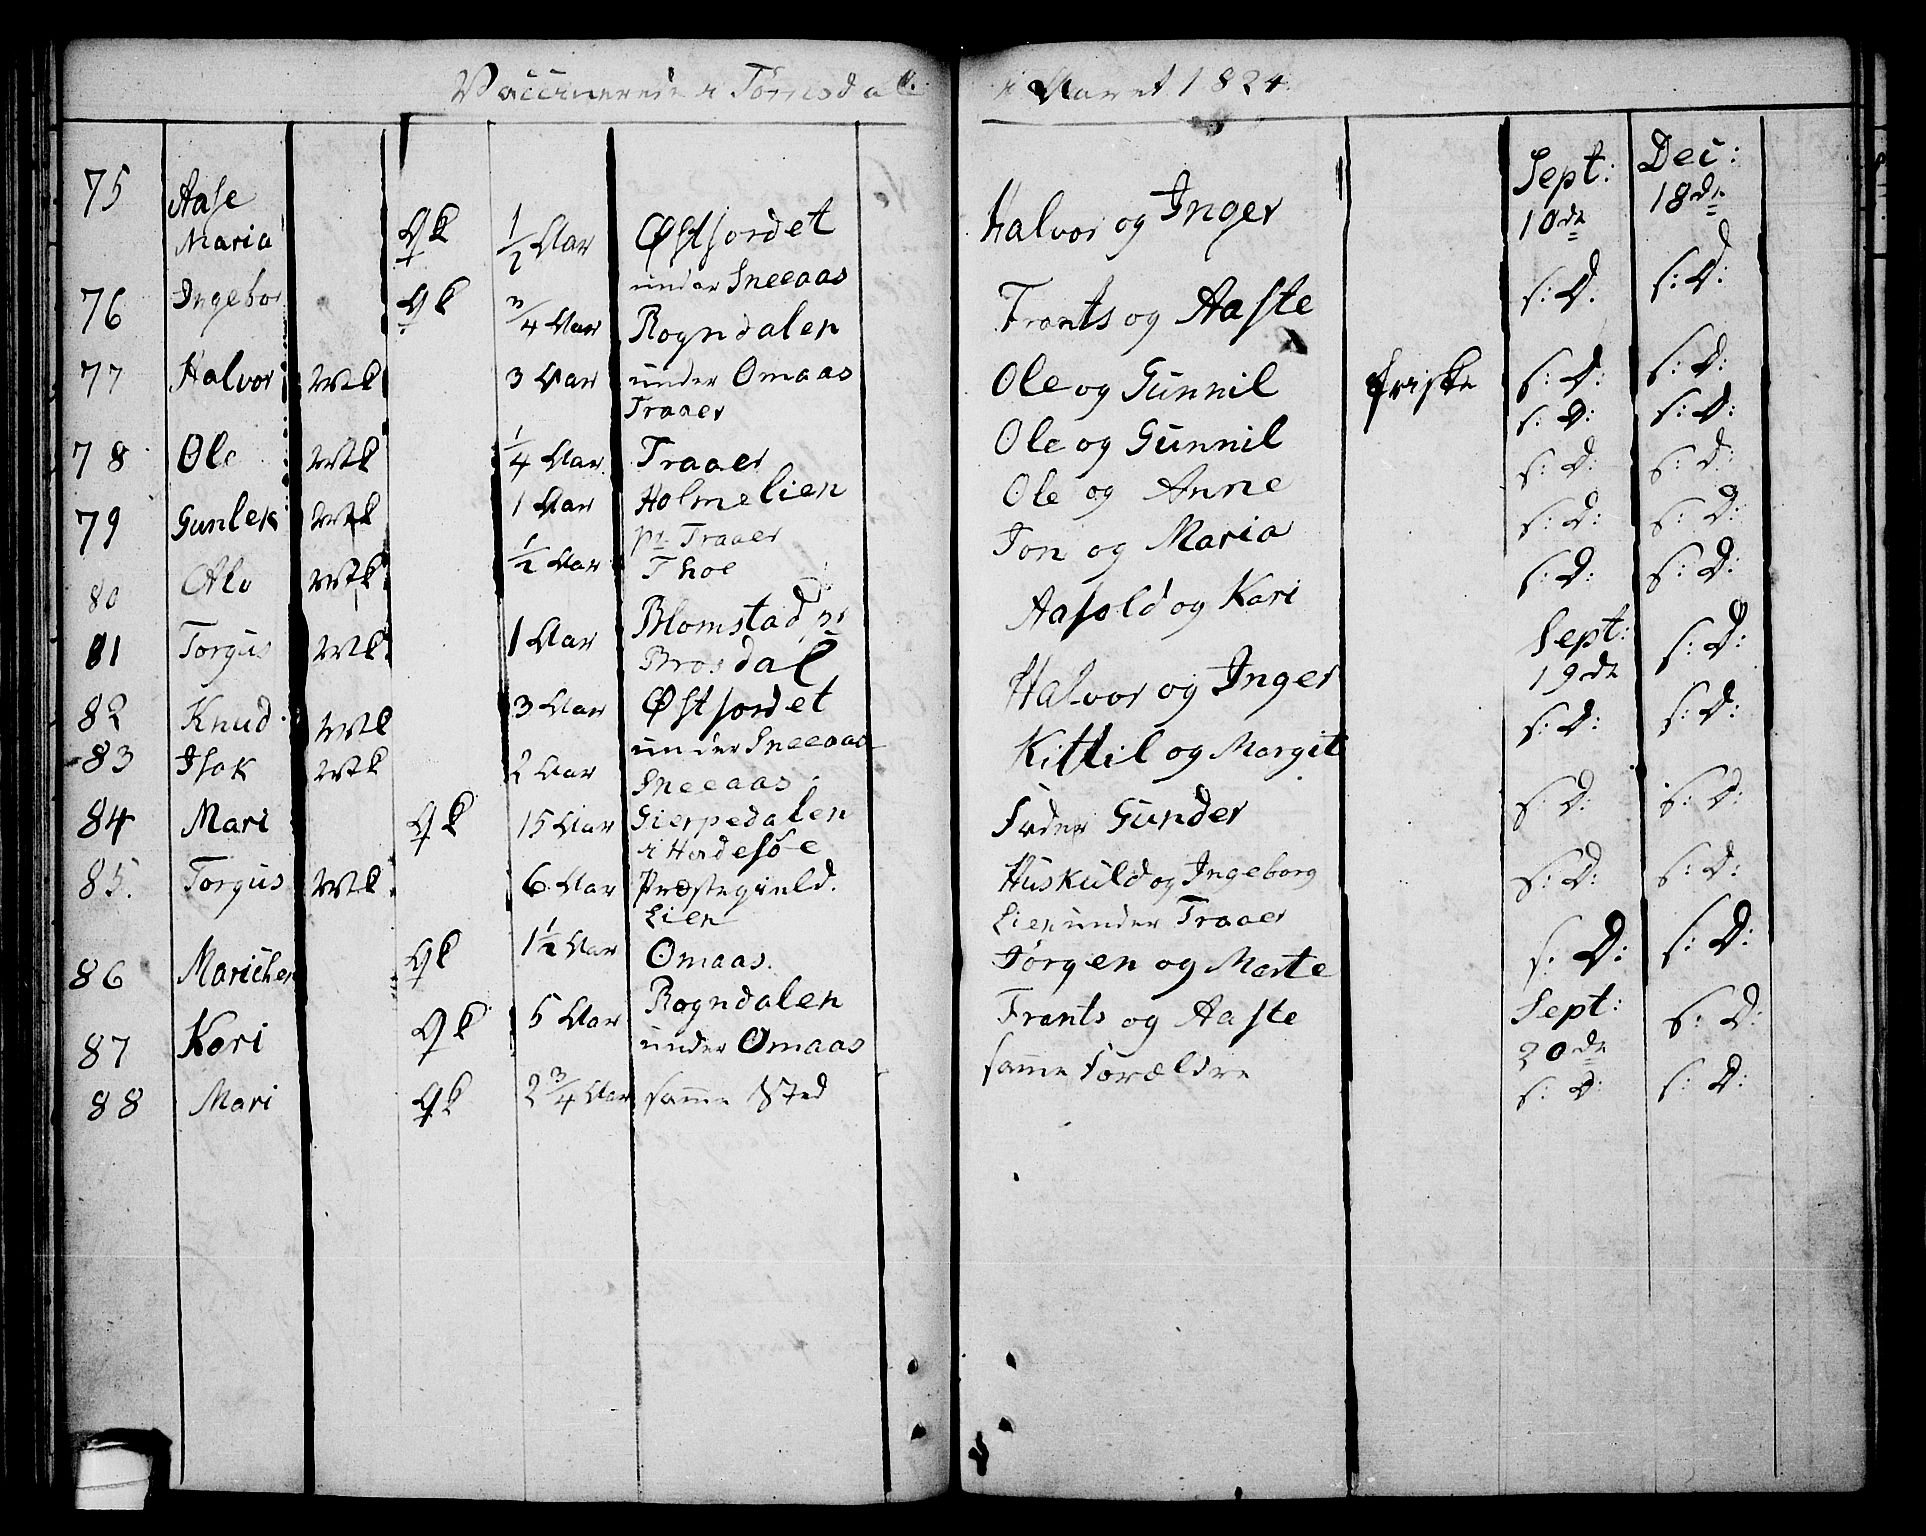 Vaccinerede i Tørresdal i Aaret 1824.
75 Aase Maria Qk 1/2 Aar Østjordet Halvor og Inger Sept: 10de Dec: 18de
under Sneeaas
76 Ingebor Qk 3/4 Aar Rogndalen Frants og Aaste s: D. s: D:
77 Halvor Mk 3 Aar under Omaas Ole og Gunnil friske s: D: s: D:
Traaer
78 Ole Mk 1/4 Aar Traaer Ole og Gunnil s: D: s: D:
79 Gunlek Mk 1 Aar Holmelien Ole og Anne s: D: s: D:
Traaer
80 Alo Mk 1/2 Aar Thoe Jon og Maria s: D: s: D:
81 Torgus Mk 1 Aar Blomstad Aasold og Kari s: D: s: D:
Brosdal
82 Knud Mk 3 Aar Østjordet Halvor og Inger Sept: 19de s: D:
under Sneeaas
83 Isak Mk 2 Aar Sneeaas Kittil og Margit s: D: s: D:
84 Mari Qk 15 Aar Gierpedalen Fader Gunder s: D: s: D:
i Hvidesøe
85. Torgus Mk 6 Aar Præstegield. Huskuld og Ingeborg s: D: s: D:
Lien Lien under Traaer
86 Marichen Qk 1 1/2 Aar Omaas. Jørgen og Marte s: D: s: D:
87 Kari Qk 5 Aar Rogndalen Frants og Aaste Sept: 20de s: D:
under Omaas
88 Mari Qk 2 3/4 Aar samme Sted samme Forældre s: D: s: D: